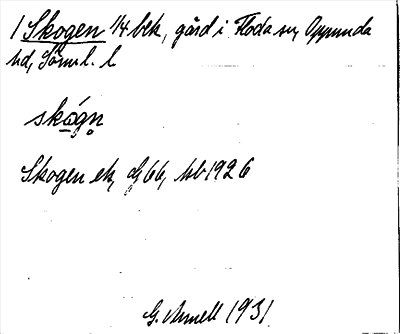 1 Skogen 1/4 bek, gård i Floda sn, Oppunda
hd, Sörml. l
skógn̥
Skogen ek, G 66, Jsb 1926
G. Annell 1931